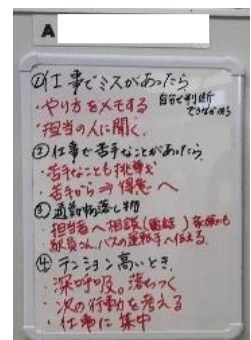 A
①仕事でミスがあったら、
自分で判断
できない時
・やり方をメモする
・担当の人に聞く。
②仕事で苦手なことがあったら、
・苦手なことも挑戦
・苦手から⇒得意へ
③通勤時の落し物
・担当者へ相談(電話)家族にも
駅員さん、バスの運転手へ伝える。
④テンション高いとき、
・深呼吸。落ちつく
・次の行動を考える
・仕事に集中